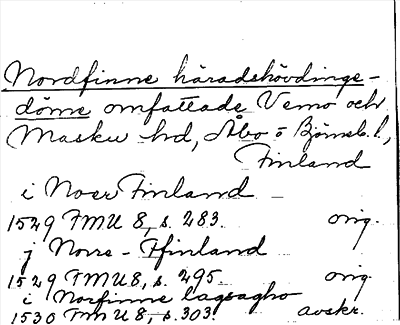 Nordfinne häradshövdinge-
döme omfattade Vemo och
Masku hd, Åbo o Björneb. l.,
Finland
i Noer Finland
1529 FMU 8, s. 283. orig.
j Norre-Ffinland
1529 FMU 8, s. 295. orig.
i Norfinne lagsagho
1530 FMU 8, s. 303. avskr.